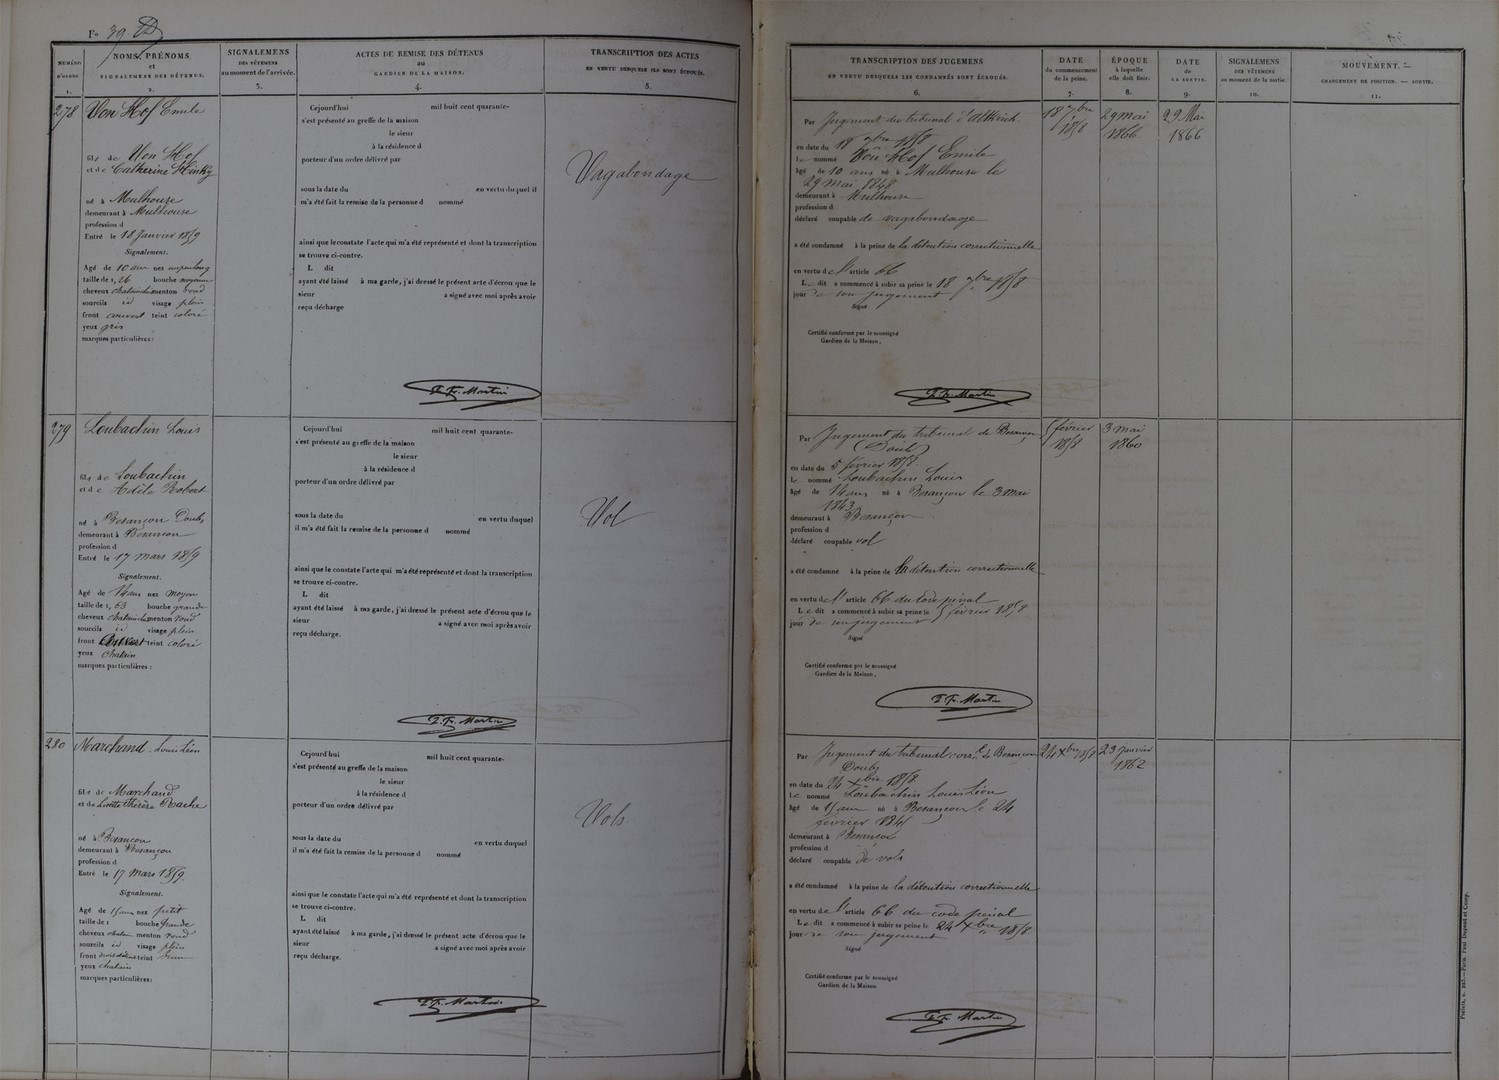 Fo 39
NUMÉRO
d'ordre
1.
NOMS, PRÉNOMS
et
SIGNALEMENS DES DÉTENUS.
2.
SIGNALEMENS
DES VÊTEMENS
au moment de l'arrivée.
3.
ACTES DE REMISE DES DÉTENUS
au
GARDIEN DE LA MAISON.
4.
TRANSCRIPTION DES ACTES
EN VERTU DESQUELS ILS SONT ÉCROUÉS.
5.
278 Von Hof Emile
fils de Von Hof
et de Catherine
né à Mulhouse
demeurant à Mulhouse
profession d
Entré le 18 Janvier 1859
Signalement.
Agé de 10 ans nez
taille de 1, 26 bouche moyenne
cheveux chatains menton rond
sourcils id visage plein
front couvert teint coloré
yeux gris
marques particulières:
Cejourd'hui mil huit cent quarante-
s'est présenté au greffe de la maison
le sieur
à la résidence d
porteur d'un ordre délivré par
sous la date du en vertu duquel il
m'a été fait la remise de la personne d nommé
ainsi que le constate l'acte qui m'a été représenté et dont la transcription
se trouve ci-contre.
L dit
ayant été laissé à ma garde, j'ai dressé le présent acte d'écrou que le
sieur a signé avec moi après avoir
reçu décharge
F. Martin
Vagabondage
279 Loubachin Louis
fils de Loubachin
et de Adèle Robert
né à Besançon Doubs
demeurant à Besançon
profession d
Entré le 17 mars 1859
Signalement.
Agé de 14 ans nez moyen
taille de 1, 63 bouche grande
cheveux chatains menton rond
sourcils id visage plein
front teint coloré
yeux chatain
marques particulières:
Cejourd'hui mil huit cent quarante-
s'est présenté au greffe de la maison
le sieur
à la résidence d
porteur d'un ordre délivré par
sous la date du en vertu duquel
il m'a été fait la remise de la personne d nommé
ainsi que le constate l'acte qui m'a été représenté et dont la transcription
se trouve ci-contre.
L dit
ayant été laissé à ma garde, j'ai dressé le présent acte d'écrou que le
sieur a signé avec moi après avoir
reçu décharge.
F. Martin
Vol
280 Marchand Louis Léon
fils de Marchand
et de Thérèse
né à Besançon
demeurant à Besançon
profession d
Entré le 17 mars 1859
Signalement.
Agé de 15 ans nez petit
taille de 1 bouche grande
cheveux chatain menton rond
sourcils id visage plein
front teint brun
yeux chatain
marques particulières:
Cejourd'hui mil huit cent quarante-
s'est présenté au greffe de la maison
le sieur
à la résidence d
porteur d'un ordre délivré par
sous la date du en vertu duquel
il m'a été fait la remise de la personne d nommé
ainsi que le constate l'acte qui m'a été représenté et dont la transcription
se trouve ci-contre.
L dit
ayant été laissé à ma garde, j'ai dressé le présent acte d'écrou que le
sieur a signé avec moi après avoir
reçu décharge.
F. Martin
Vols
TRANSCRIPTION DES JUGEMENS
EN VERTU DESQUELS LES CONDAMNÉS SONT ÉCROUÉS.
6.
DATE
du commencement
de la peine.
7.
ÉPOQUE
à laquelle
elle doit finir.
8.
DATE
de
LA SORTIE.
9.
SIGNALEMENS
DES VÊTEMENS
au moment de la sortie.
10.
MOUVEMENT.
CHANGEMENT DE POSITION. — SORTIE.
11.
Par Jugement du tribunal d'Altkirch
en date du 18 7bre 1858
Le nommé Von Hof Emile
âgé de 10 ans né à Mulhouse le
29 mai 1848
demeurant à Mulhouse
profession d
déclaré coupable de vagabondage
a été condamné à la peine de la détention correctionnelle
en vertu de l'article 66
Le dit a commencé à subir sa peine le 18 7bre 1858
jour de son jugement
Signé
Certifié conforme par le soussigné
Gardien de la Maison.
F. Martin
18 7bre
1858
29 mai
1866
29 Mai
1866
Par Jugement du tribunal de Besançon
(Doubs)
en date du 5 février 1858
Le nommé Loubachin Louis
âgé de 14 ans né à Besançon le 3 mai
1843
demeurant à Besançon
profession d
déclaré coupable vol
a été condamné à la peine de la détention correctionnelle
en vertu de l'article 66 du code pénal
Le dit a commencé à subir sa peine le 5 février 1858
jour de son jugement
Signé
Certifié conforme par le soussigné
Gardien de la Maison.
F. Martin
5 février
1858
3 mai
1860
Par Jugement du tribunal corr.el de Besançon
Doubs
en date du 24 Xbre 1858
Le nommé Loubachin Louis Léon
âgé de 15 ans né à Besançon le 24
février 1845
demeurant à Besançon
profession d
déclaré coupable de vols
a été condamné à la peine de la détention correctionnelle
en vertu de l'article 66 du code pénal
Le dit a commencé à subir sa peine le 24 Xbre 1858
jour de son jugement
Signé
Certifié conforme par le soussigné
Gardien de la Maison
F. Martin
24 Xbre 1858
23 janvier
1862